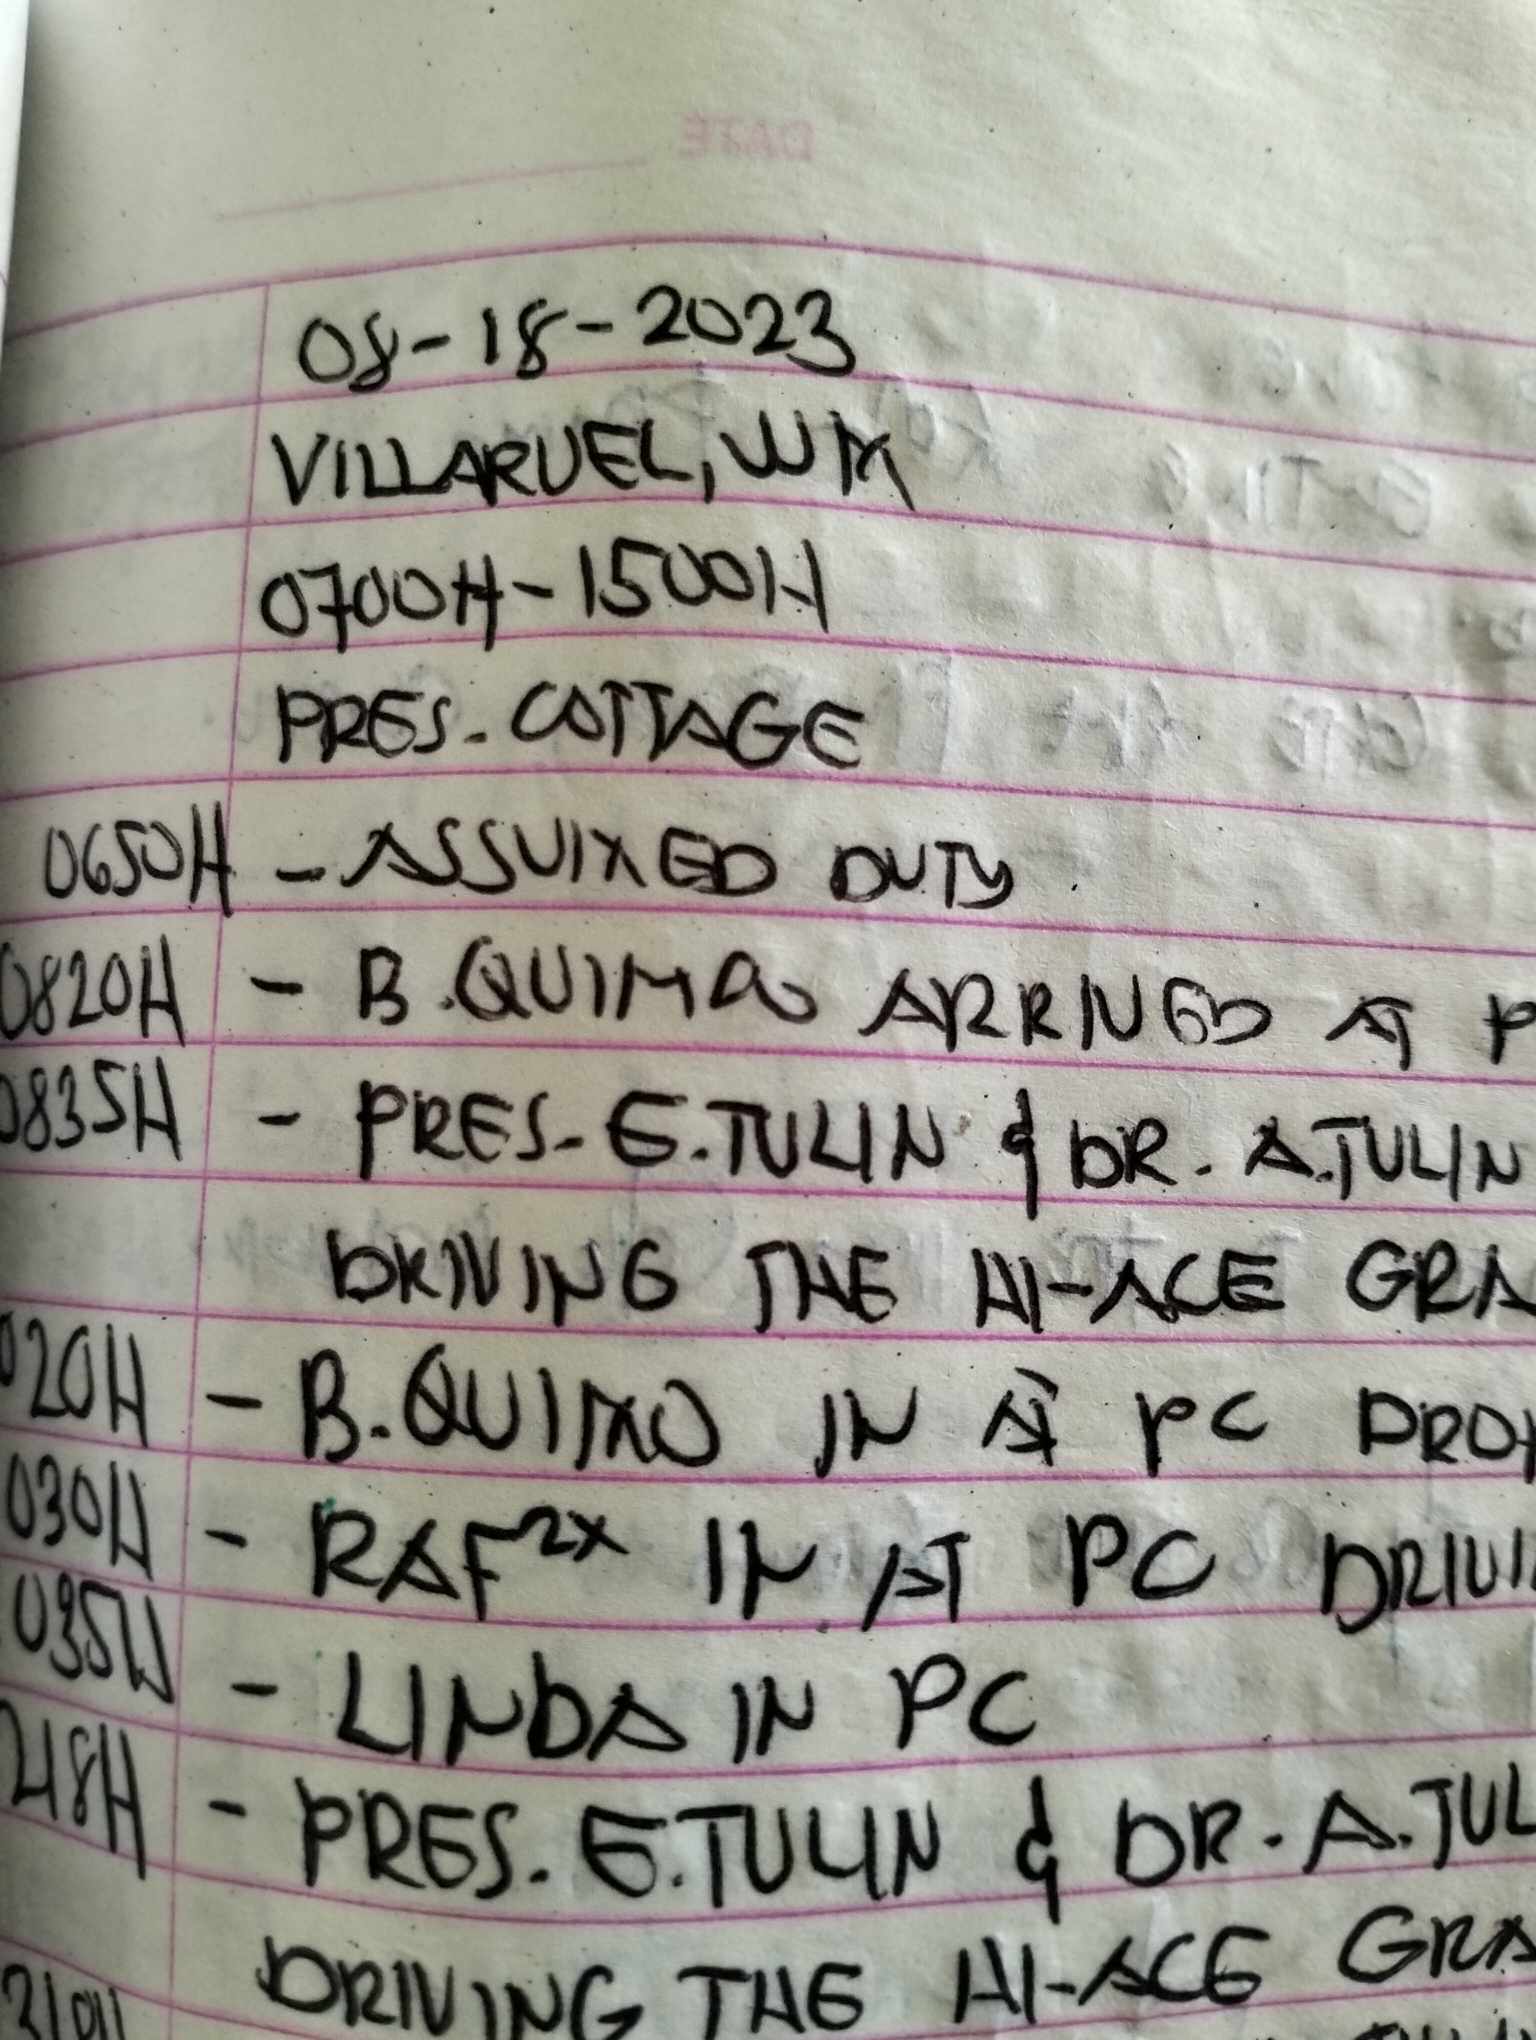 DATE
08-18-2023
VILLARUEL, WM
0700H-1500H
PRES. COTTAGE
0650H - ASSUMED DUTY
0820H - B. QUIMO ARRIVED AT P
0835H - PRES. E. TULIN & DR. A. TULIN
DRIVING THE HI-ACE GRA
020H - B. QUIMO IN AT PC DROP
030H - RAF 2x IN AT PC DRIVI
035H - LINDA IN PC
248H - PRES. E. TULIN & DR. A. TUL
DRIVING THE HI-ACE GRA